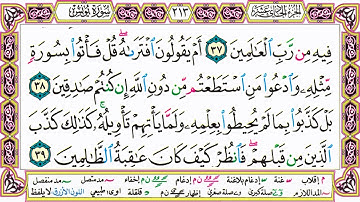 سورة يونس ٢١٣
فِيهِ مِن رَّبِّ الْعَالَمِينَ ٣٧ أَمْ يَقُولُونَ افْتَرَاهُ ۖ قُلْ فَأْتُوا بِسُورَةٍ
مِّثْلِهِ وَادْعُوا مَنِ اسْتَطَعْتُم مِّن دُونِ اللَّهِ إِن كُنتُمْ صَادِقِينَ ٣٨
بَلْ كَذَّبُوا بِمَا لَمْ يُحِيطُوا بِعِلْمِهِ وَلَمَّا يَأْتِهِمْ تَأْوِيلُهُ ۚ كَذَٰلِكَ كَذَّبَ
الَّذِينَ مِن قَبْلِهِمْ ۖ فَانظُرْ كَيْفَ كَانَ عَاقِبَةُ الظَّالِمِينَ ٣٩